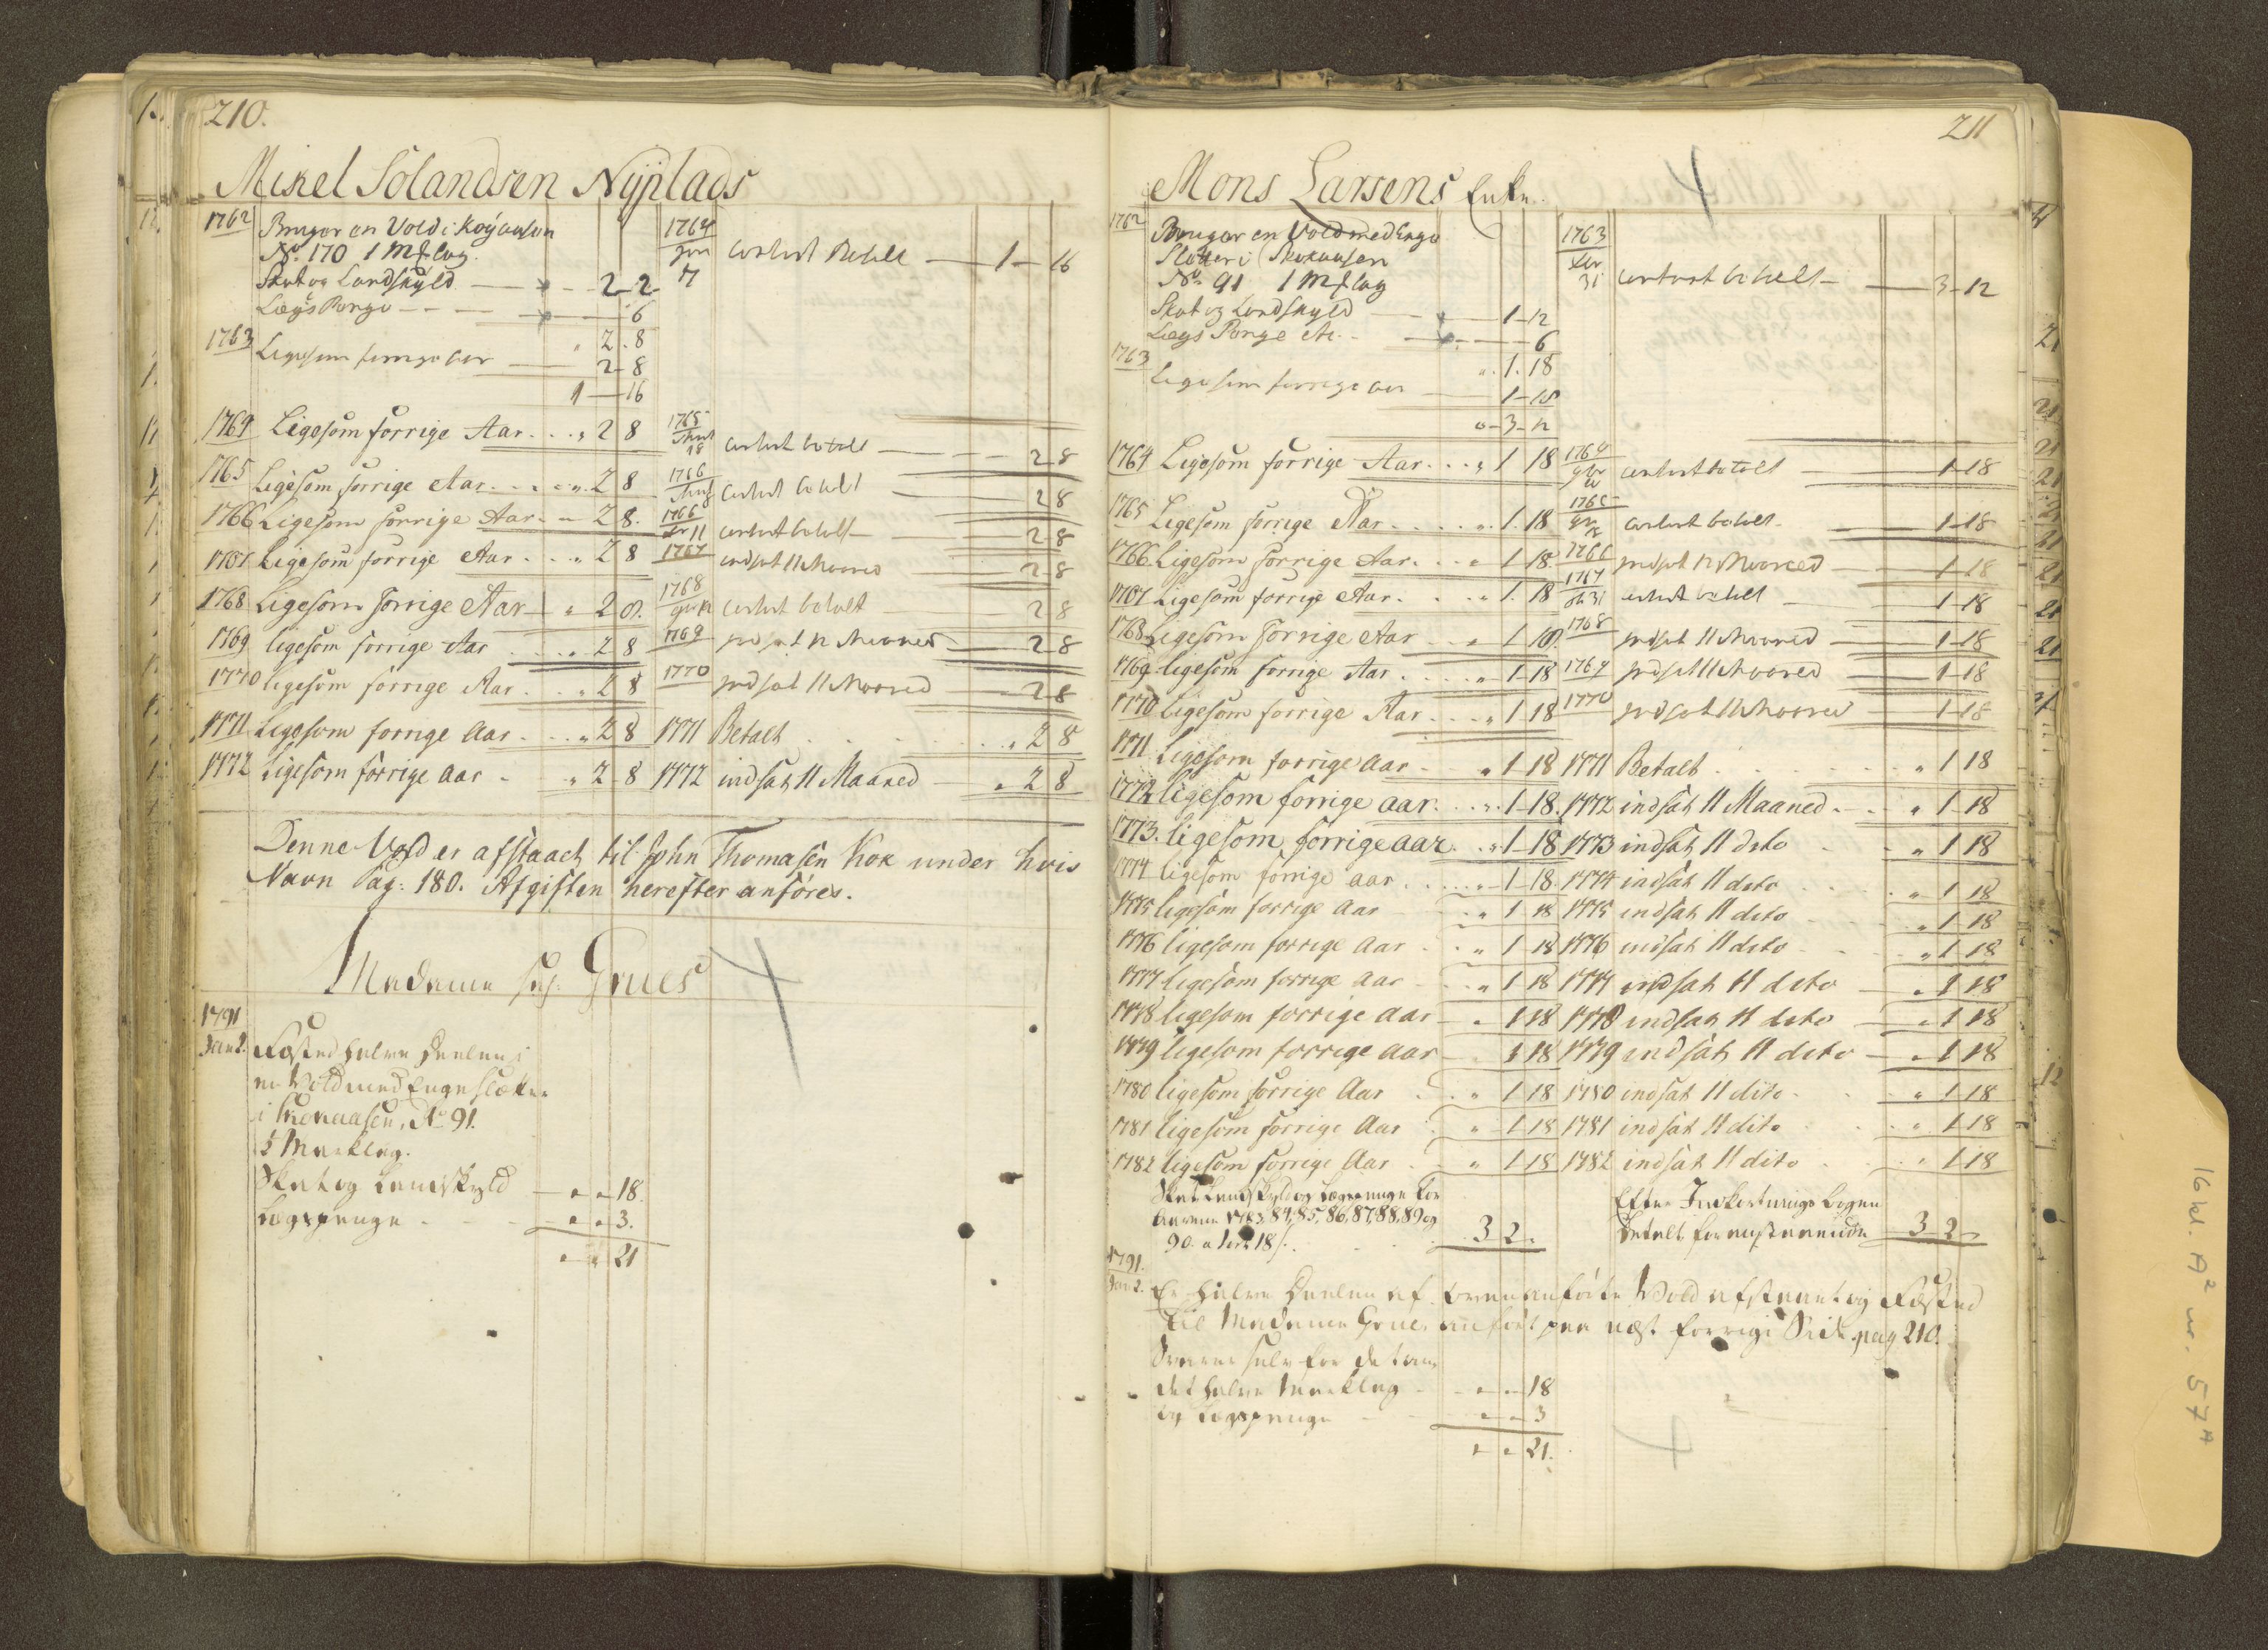 210.
Mikel Solandsen Nÿplads
1762 Bruger en Vold i
No. 170 1 Mk lag.
Skat og Landskyld 2 2
Lægs Penge 6
2 . 8
1763 Ligesom forrige aar 2 8
1 16
1764 Jan 7 contant Betalt 1 16
1764 Ligesom forrige Aar 2 8 1765 18 contant betalt 2 8
1765 Ligesom forrige Aar 2 8 1766 contant betalt 2 8
1766 Ligesom forrige Aar 2 8. 1766 11 contant betalt 2 8
1767 Ligesom forrige Aar 2 8 1767 indsat 11 Maaned 2 8
1768 Ligesom forrige Aar 2 8. 1768 contant betalt 2 8
1769 ligesom forrige Aar 2 8 1769 indsat 11 Maaned 2 8
1770 ligesom forrige Aar 2 8 1770 indsat 11 Maaned 2 8
1771 Ligesom forrige Aar 2 8 1771 Betalt 2 8
1772 Ligesom forrige aar 2 8 1772 indsat 11 Maaned 2 8
Denne Vold er afstaaet til John Thomasen Kok under hvis
Navn Pag: 180. Afgiften herefter anföres.
Madame Grues
1791
Jan 2. Fæsted halve Deelen i
en Vold med Enge slætter
i Skovaasen, No 91.
½ Marklag.
Skat og Landskyld " " 18.
Lægspenge " " 3.
" " 21
211
Mons Larsens Enke.
1762 Bruger en Vold med Enge
Slætter i
No. 91 1 Mk lag
Skat og Landskyld 1 12
Lægs Penge etc. 6
1. 18
1763 Ligesom forrige aar 1 18
3 12
1763 31 contant betalt 3 12
1764 Ligesom forrige Aar 1 18 1764 contant betalt 1 18
1765 Ligesom forrige Aar 1. 18 1765 contant betalt 1 18
1766 Ligesom forrige Aar 1 18. 1766 indsat 11 Maaned 1 18
1767 Ligesom forrige Aar 1. 18 1767 31 contant betalt 1 18
1768 Ligesom forrige Aar 1 18. 1768 indsat 11 Maaned 1 18
1769 ligesom forrige Aar 1 18 1769 indsat 11 Maaned 1 18
1770 Ligesom forrige Aar 1 18 1770 indsat 11 Maaned 1 18
1771 Ligesom forrige aar 1 18 1771 Betalt 1 18
1772 ligesom forrige aar 1 18. 1772 indsat 11 Maaned 1 18
1773. ligesom forrige aar 1 18 1773 indsat 11 dito 1 18
1774 ligesom forrige aar 1 18. 1774 indsat 11 dito 1 18
1775 ligesom forrige Aar 1 18 1775 indsat 11 dito 1 18
1776 ligesom forrige Aar 1 18 1776 indsat 11 dito 1 18
1777 ligesom forrige Aar 1 18 1777 indsat 11 dito 1 18
1778 ligesom forrige aar 1 18 1778 indsat 11 dito 1 18
1779 ligesom forrige aar 1 18 1779 indsat 11 dito 1 18
1780 ligesom forrige Aar 1 18 1780 indsat 11 dito 1 18
1781 ligesom forrige Aar 1 18 1781 indsat 11 dito 1 18
1782 ligesom forrige Aar 1 18 1782 indsat 11 dito 1 18
Skat Landskyld og Lægspenge for
Aarene 1783, 84, 85, 86, 87, 88, 89 og
90. a 18 s. 3 2
Efter Bogen
betalt foranstaaende 3 2
1791.
Jan 2. Er halve Deelen af forenanförte Vold afstaaet og Fæsted
til Madame Grues anfört paa næst forrige Side pag 210.
Svarer selv for
det halve Marklag " " 18
og Lægspenge " " 3
" " 21.
16 kl. A² nr. 57ᵃ